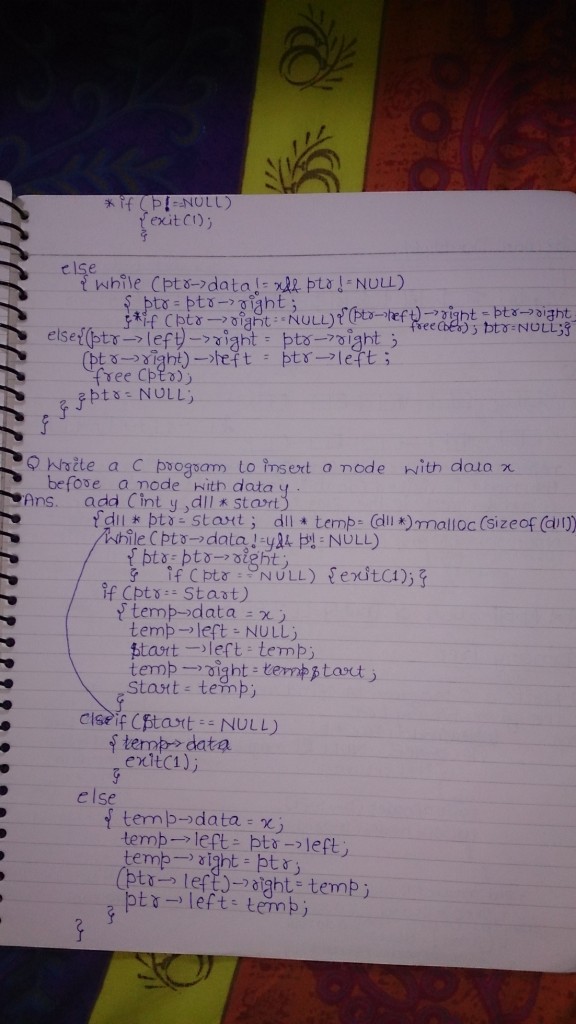 *if (p!=NULL)
{exit(1);
}
else
{ while (ptr→data != x&& ptr != NULL)
{ ptr = ptr → right;
}*if (ptr → right == NULL) {(ptr→left)→right = ptr→right
free(ptr); ptr=NULL;}
else{(ptr → left) → right = ptr → right ;
(ptr → right) → left = ptr → left ;
free (ptr);
} }ptr = NULL;
}
Q Write a C program to insert a node with data x
before a node with data y.
Ans. add (int y, dll * start)
{dll * ptr = start ; dll * temp = (dll *) malloc (sizeof (dll))
while (ptr→data !=y&& p!=NULL)
{ ptr=ptr→right;
} if (ptr == NULL) {exit(1);}
if (ptr == Start)
{temp→data = x;
temp→left = NULL;
start →left = temp;
temp →right = temp start;
Start = temp;
}
else if (Start == NULL)
{ temp→ data
exit(1);
}
else
{ temp→data = x;
temp→left = ptr →left;
temp→right = ptr;
(ptr→ left)→right = temp;
ptr → left = temp;
}
}